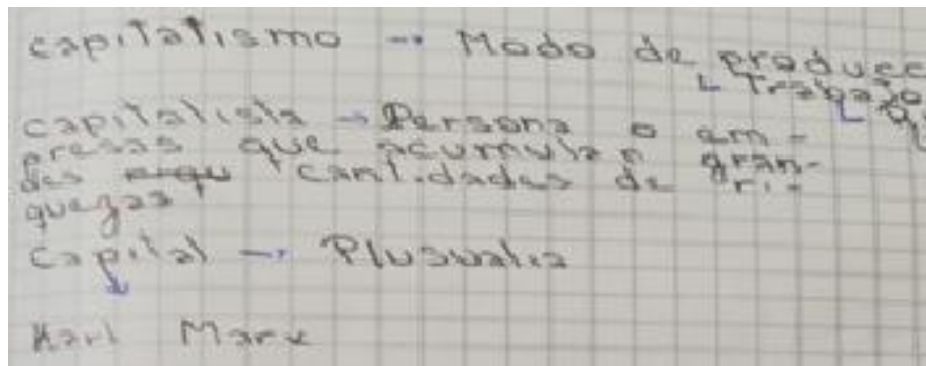 capitalismo → Modo de producc
↳ Trabajo
capitalista → Persona o em-
presas que acumulan gran-
des cantidades de ri-
quezas
capital → Plusvalia
↓
Karl Marx